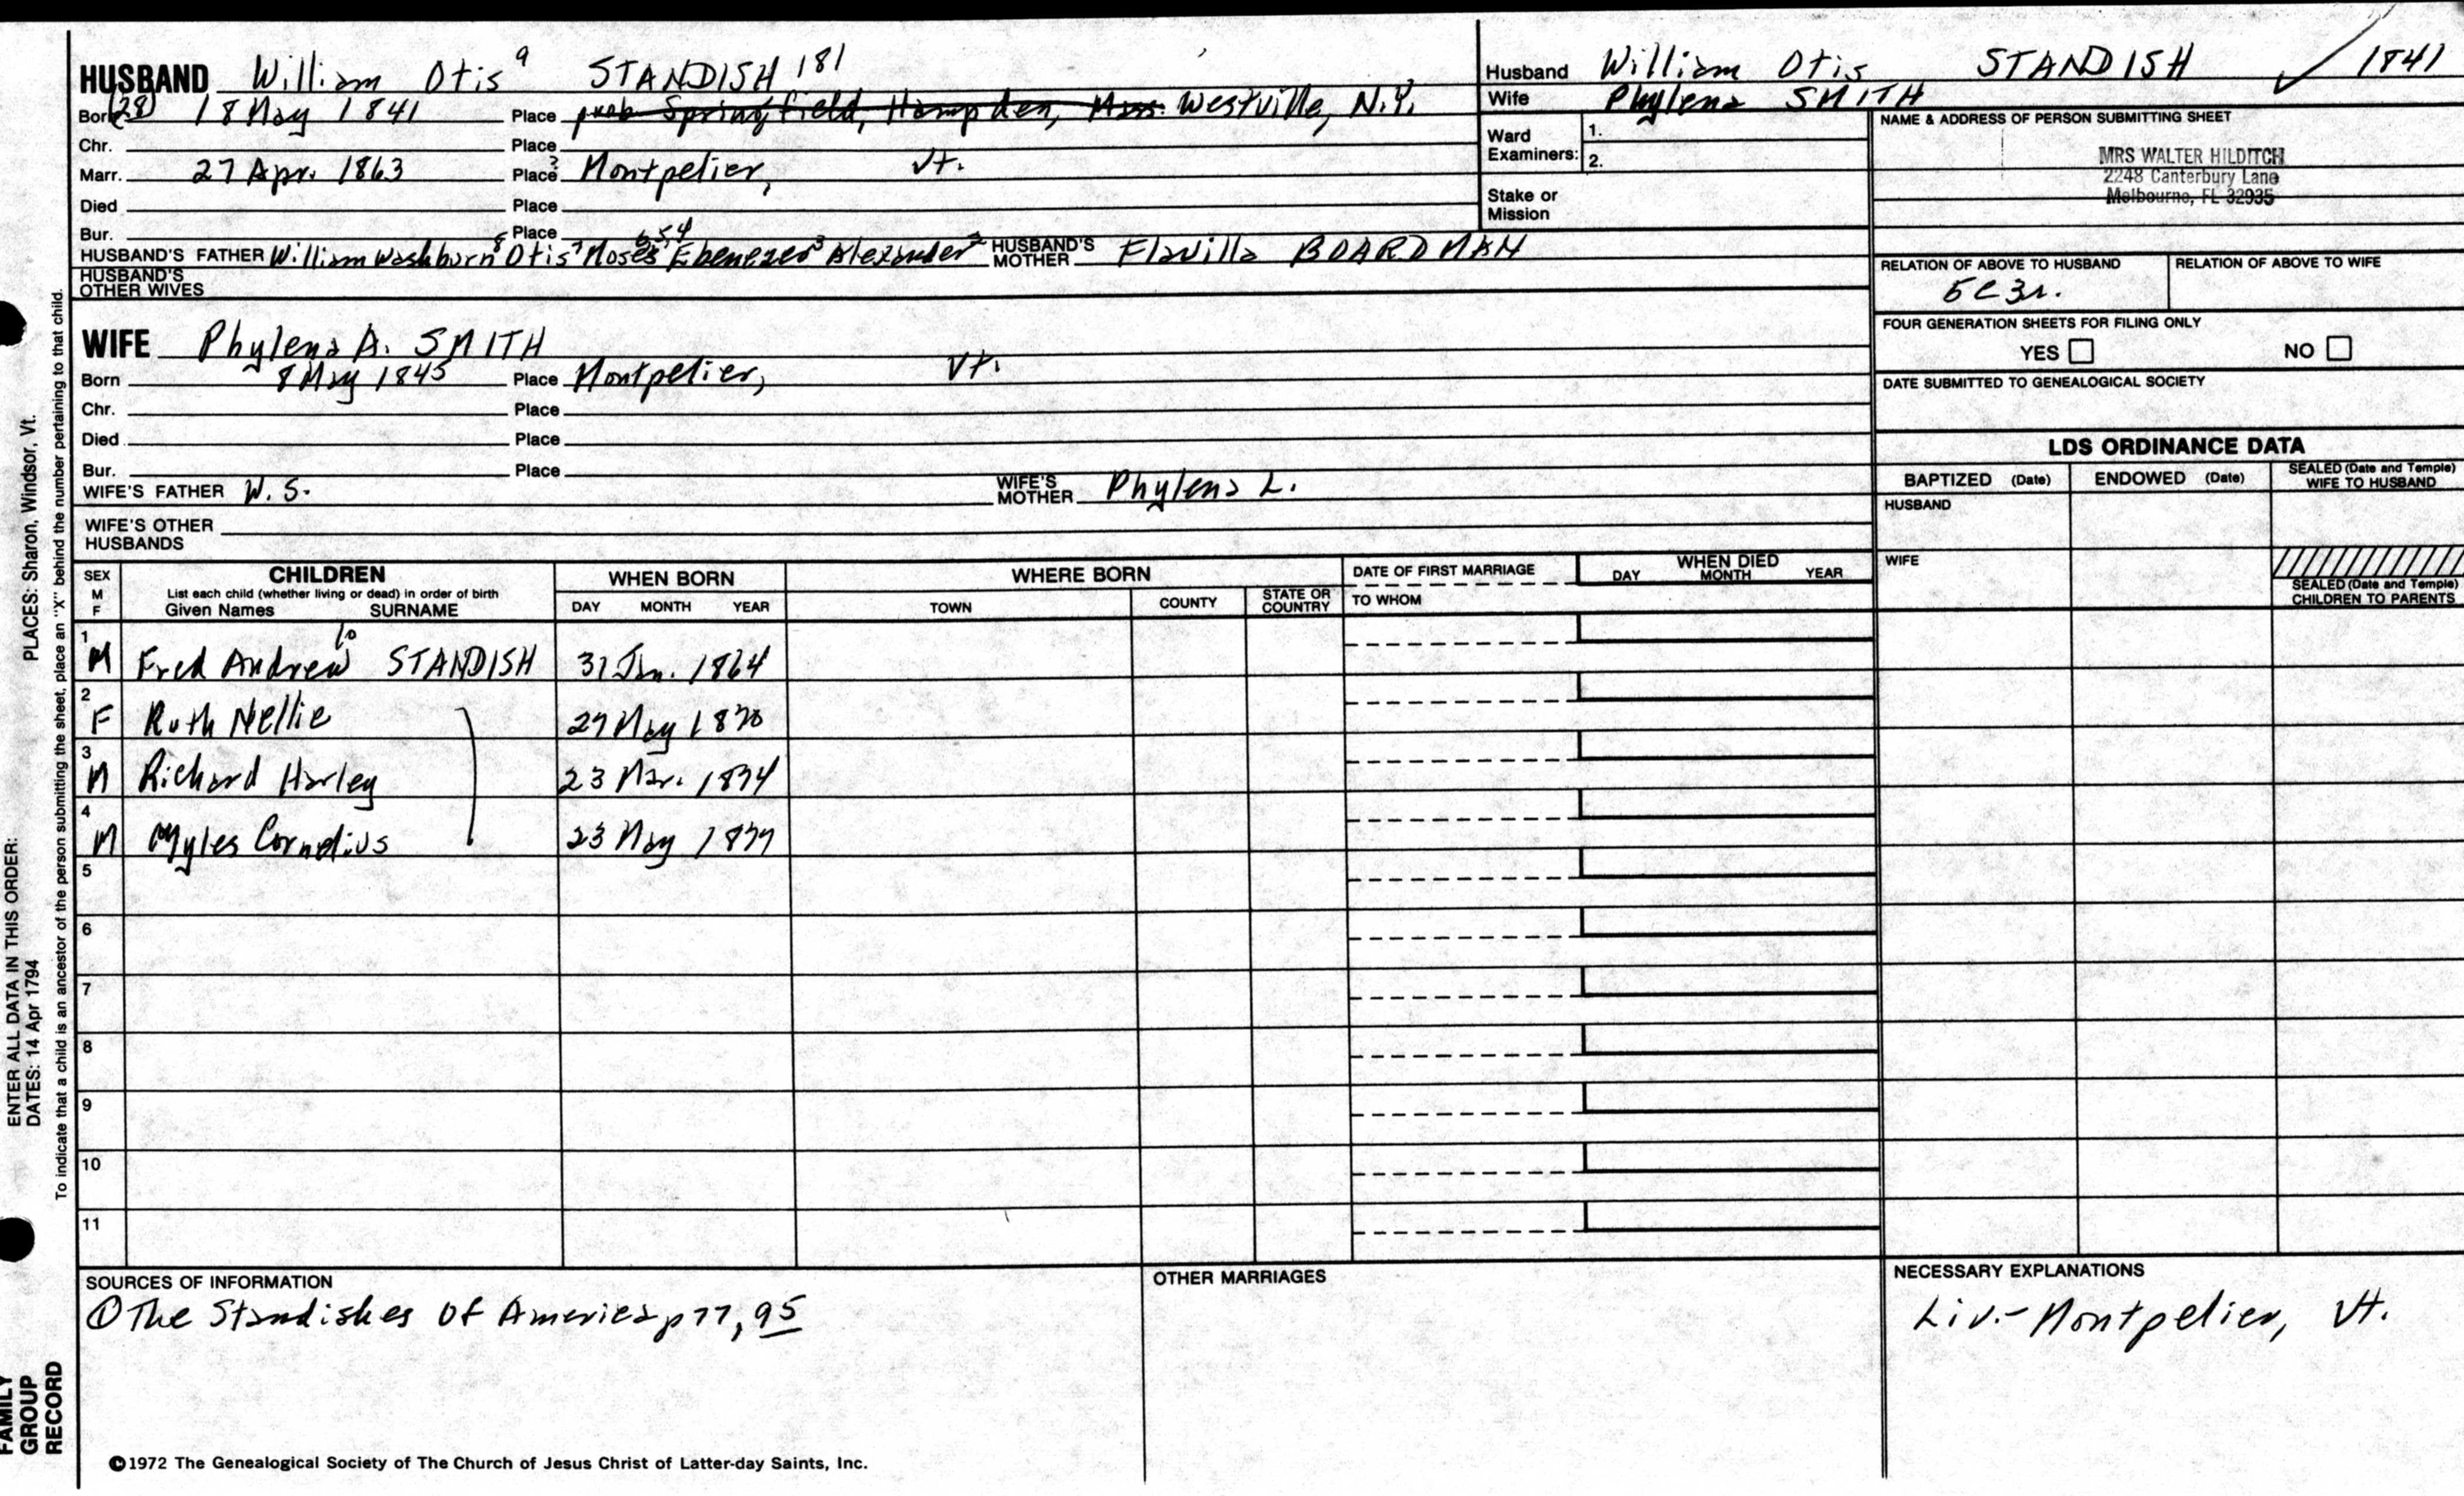 HUSBAND William Otis 9 STANDISH 181
Born (28) 18 May 1841 Place prob Springfield, Hampden, Mass. Westville, N.Y.
Chr. Place
Marr. 27 Apr. 1863 Place ? Montpelier, Vt.
Died Place
Bur. Place
HUSBAND'S FATHER William Washburn 8 Otis 7 Moses 6, 5, 4 Ebenezer 3 Alexander 2 HUSBAND'S MOTHER Flavilla BOARDMAN
HUSBAND'S OTHER WIVES
WIFE Phylena A. SMITH
Born 8 May 1845 Place Montpelier, Vt.
Chr. Place
Died Place
Bur. Place
WIFE'S FATHER W. S. WIFE'S MOTHER Phylena L.
WIFE'S OTHER HUSBANDS
Husband William Otis STANDISH ✓ 1841
Wife Phylena SMITH
Ward Examiners: 1.
2.
Stake or Mission
NAME & ADDRESS OF PERSON SUBMITTING SHEET
MRS WALTER HILDITCH
2248 Canterbury Lane
Melbourne, FL 32935
RELATION OF ABOVE TO HUSBAND RELATION OF ABOVE TO WIFE
5C3r.
FOUR GENERATION SHEETS FOR FILING ONLY
YES NO
DATE SUBMITTED TO GENEALOGICAL SOCIETY
LDS ORDINANCE DATA
BAPTIZED (Date) ENDOWED (Date) SEALED (Date and Temple) WIFE TO HUSBAND
HUSBAND
WIFE
SEALED (Date and Temple) CHILDREN TO PARENTS
SEX M F
CHILDREN
List each child (whether living or dead) in order of birth
Given Names SURNAME
WHEN BORN
DAY MONTH YEAR
WHERE BORN
TOWN COUNTY STATE OR COUNTRY
DATE OF FIRST MARRIAGE
TO WHOM
WHEN DIED
DAY MONTH YEAR
1 M Fred Andrew 10 STANDISH 31 Jan. 1864
2 F Ruth Nellie 27 May 1870
3 M Richard Harley 23 Mar. 1874
4 M Myles Cornelius 23 May 1877
5
6
7
8
9
10
11
SOURCES OF INFORMATION
① The Standishes Of America p 77, 95
OTHER MARRIAGES
NECESSARY EXPLANATIONS
Liv.- Montpelier, Vt.
©1972 The Genealogical Society of The Church of Jesus Christ of Latter-day Saints, Inc.
ENTER ALL DATA IN THIS ORDER:
DATES: 14 Apr 1794 PLACES: Sharon, Windsor, Vt.
To indicate that a child is an ancestor of the person submitting the sheet, place an "X" behind the number pertaining to that child.
FAMILY
GROUP
RECORD